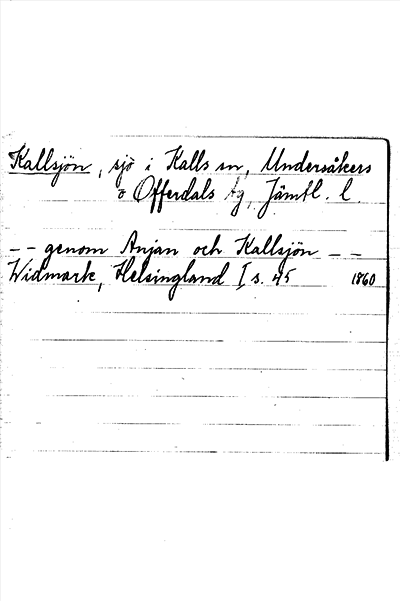 Kallsjön, sjö i Kalls sn, Undersåkers
o Offerdals tg, Jämtl. l.
-- genom Anjan och Kallsjön --
Widmark, Helsingland I s. 45 1860